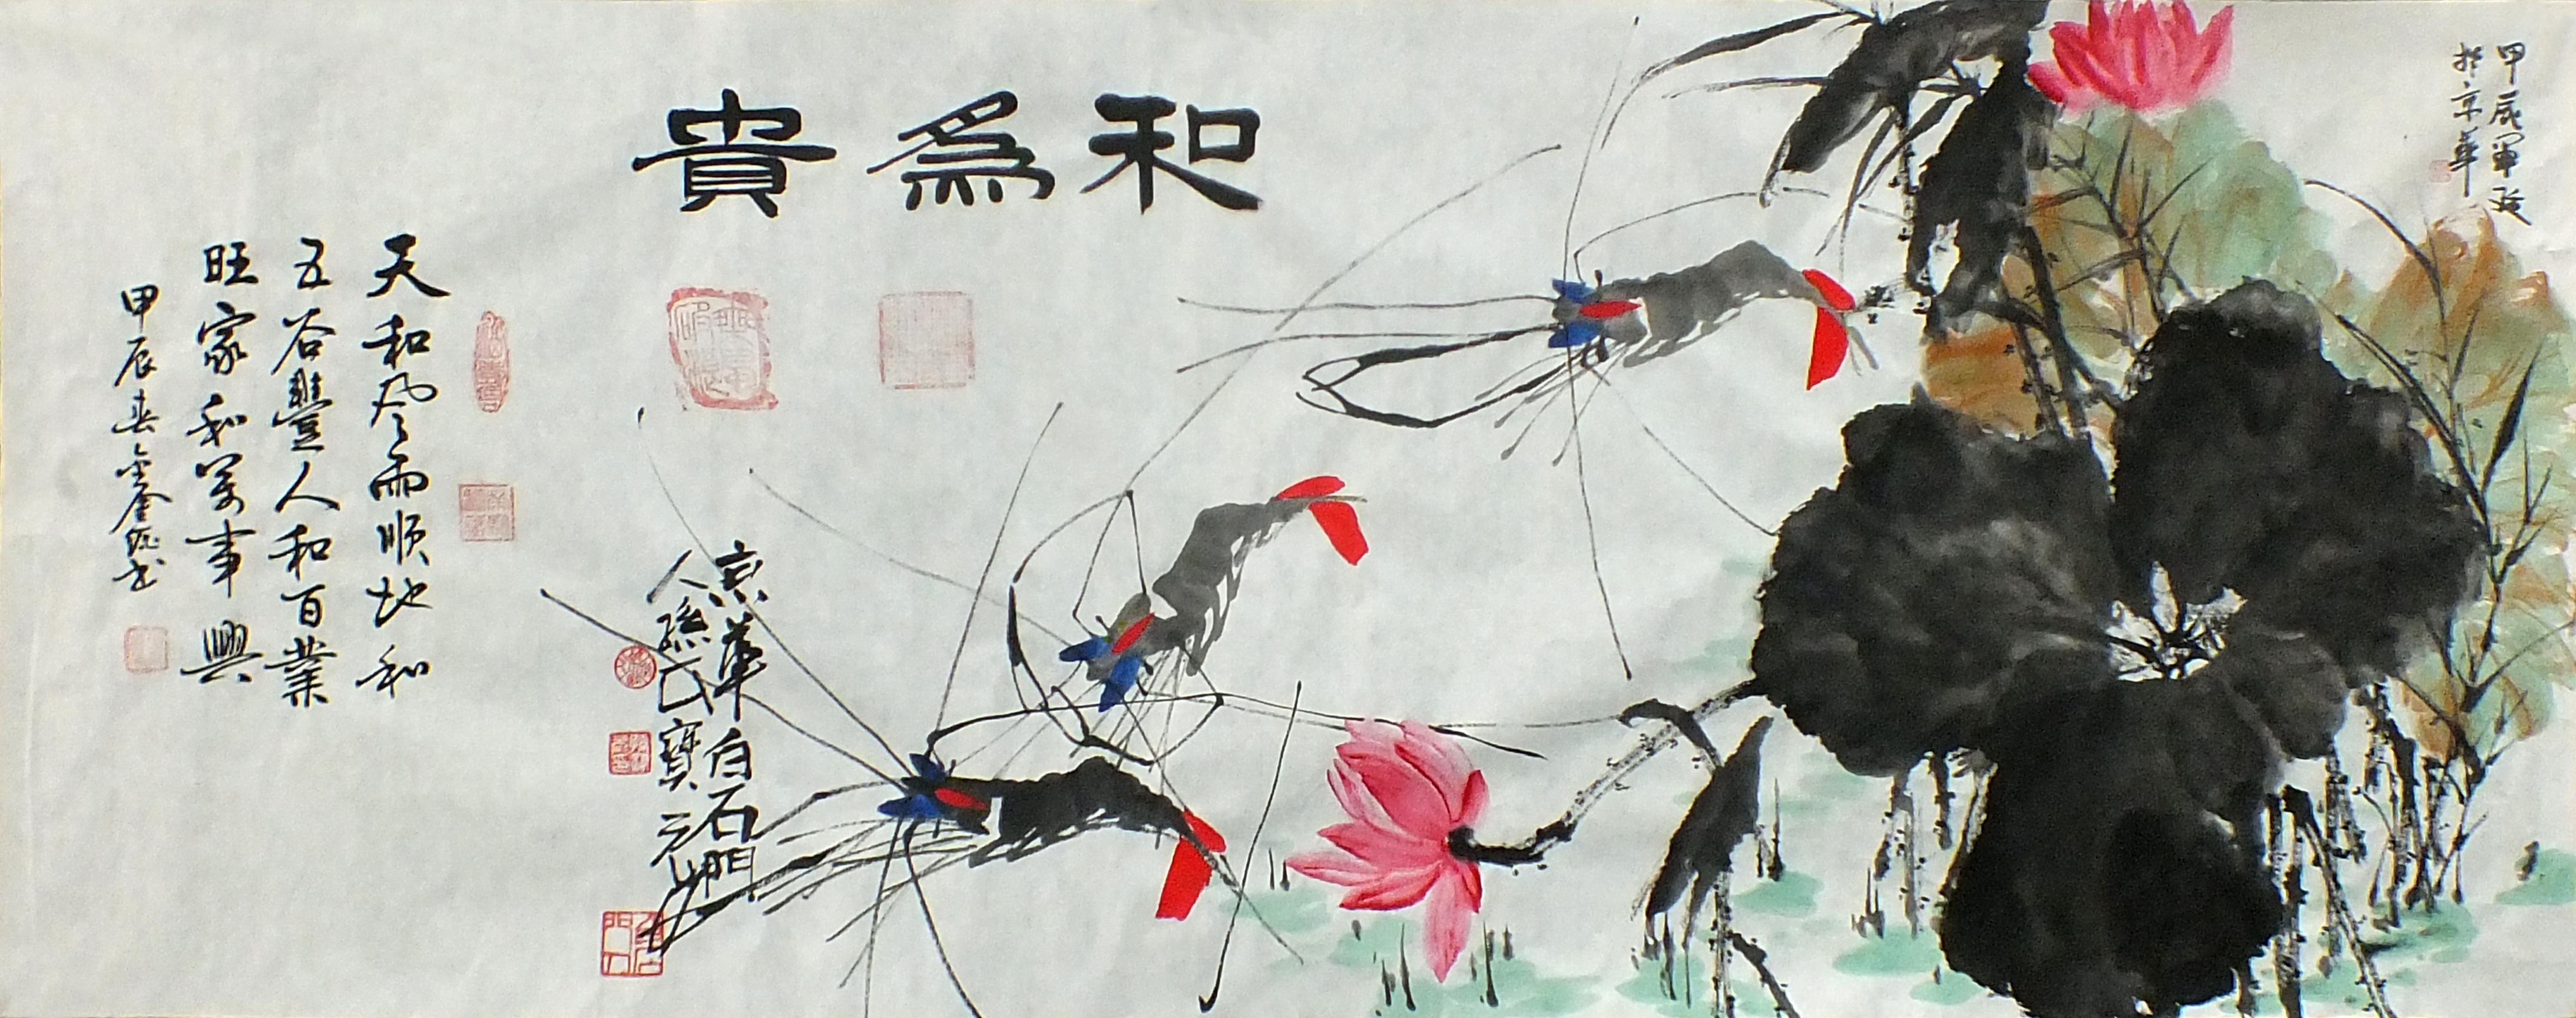 甲辰
於京華
和為貴
京華白石門
人孫氏寶
天和風雨順地和
五谷豐人和百業
旺家和萬事興
甲辰春